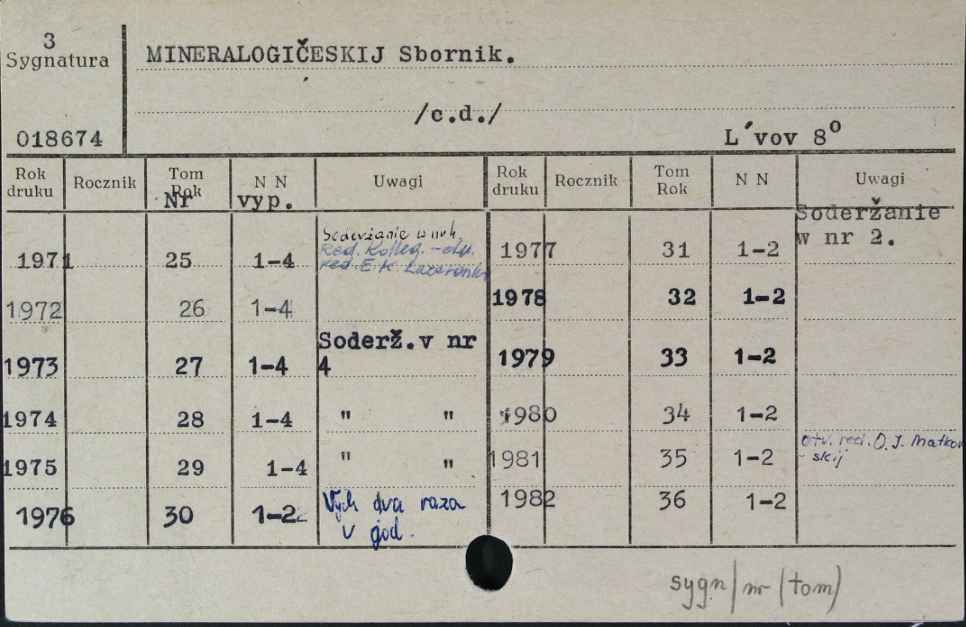 3
Sygnatura
MINERALOGIČESKIJ Sbornik.
/c.d./
018674
L'vov 8º
Rok druku Rocznik Tom Rok N N Uwagi Rok druku Rocznik Tom Rok N N Uwagi
Nr vyp.
Soderžanie w nr 4.
Red. Kolleg. - otv.
red. E. K. Lazarenko
1971 25 1-4
1972 26 1-4
Soderž.v nr
1973 27 1-4 4
1974 28 1-4 " "
1975 29 1-4 " "
1976 30 1-2 Vych dva raza
v god.
Soderžanie
1977 31 1-2 w nr 2.
1978 32 1-2
1979 33 1-2
1980 34 1-2
1981 35 1-2 Otv. red. O. I. Matkov
- skij
1982 36 1-2
sygn/nr (tom)